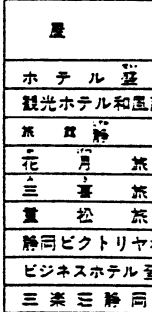 屋
ホテル盛
観光ホテル和風
旅館静
花月旅
三喜旅
重松旅
静岡ビクトリヤ
ビジネスホテル
三楽荘静岡